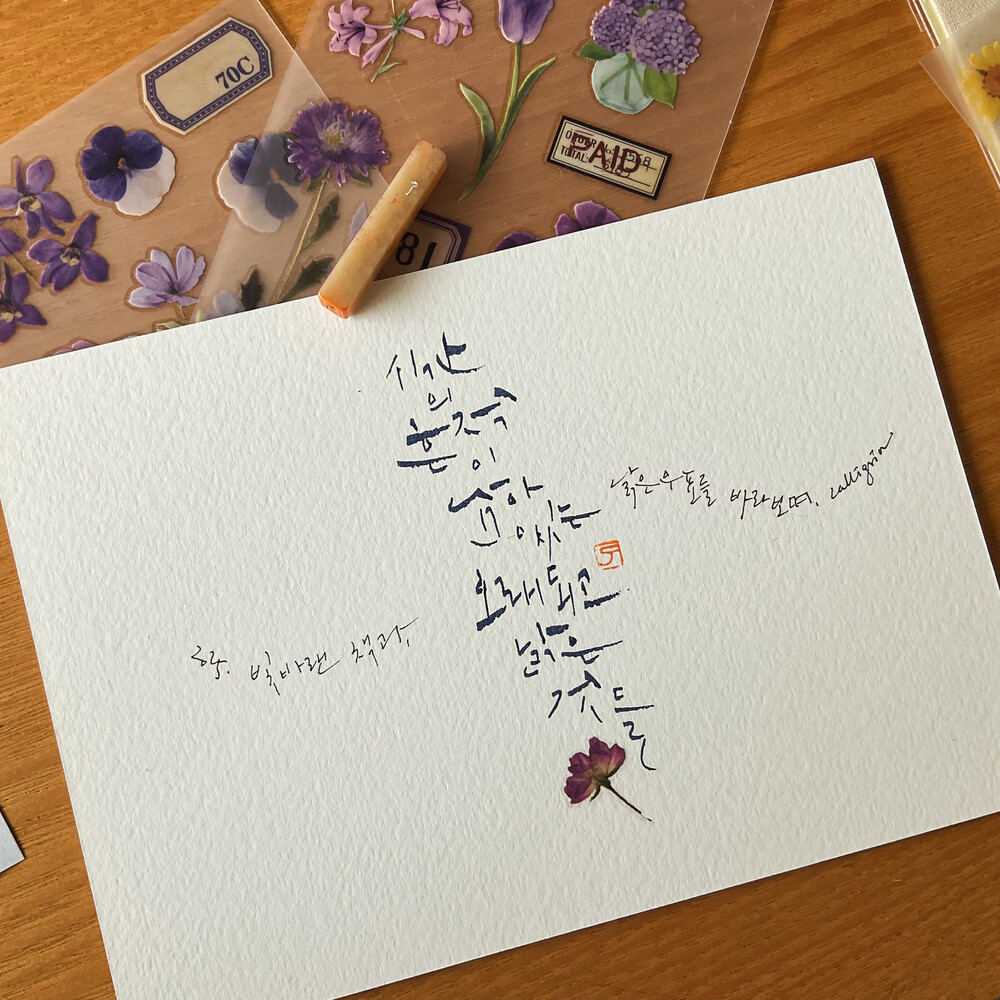 70C
PAID
TOTAL:
81
시간
의
흔적
이
남아
있는
오래되고
낡은
것들
낡은 우표를 바라보며. calligrin
빛바랜 책과,